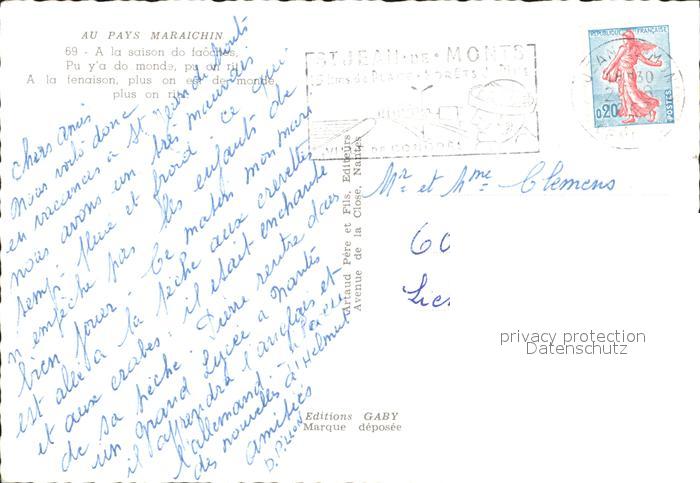 AU PAYS MARAICHIN
69 - A la saison do faôches,
Pu y'a do monde, pu on rit
A la fenaison, plus on est de monde,
plus on rit
Chers amis
Nous voilà donc
en vacances à St Jean de Monts
nous avons un très mauvais
temps. pluie et froid. ce qui
n'empêche pas les enfants de
bien jouer. Ce matin mon mari
est allé à la pêche aux crevettes
et aux crabes, il était enchanté
de sa pêche. Pierre rentre dans
un grand Lycée à Nantes
il apprendra l'anglais et
l'allemand.
des nouvelles d'Helmut
amitiés
Artaud Père et Fils, Editeurs
Avenue de la Close, Nantes
Editions GABY
Marque déposée
ST JEAN-DE-MONTS
REPUBLIQUE FRANÇAISE
0,20
POSTES
Mr et Mme Clemens
60
privacy protection
Datenschutz